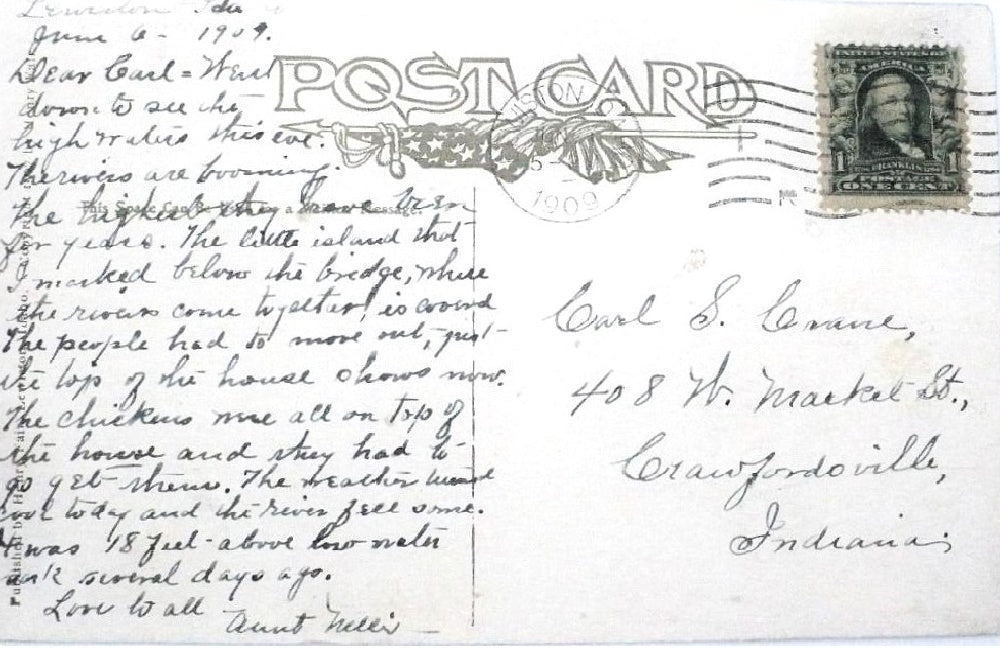 Lewiston Ida
June 6 - 1909.
Dear Carl = Went
down to see the
high waters this eve.
The rivers are booming.
The highest they have been
for years. The little island that
I marked below the bridge, where
the rivers come together, is covered
The people had to move out, just
the top of the house shows now.
The chickens were all on top of
the house and they had to
go get them. The weather turned
cool today and the river fell some.
It was 18 feet above low water
mark several days ago.
Love to all
Aunt Nell
POST CARD
This Space Can be a Message.
Published by
JUN
5
1909
FRANKLIN
1 1
ONE CENT
Carl S. Crane,
408 W. Market St.,
Crawfordsville,
Indiana;